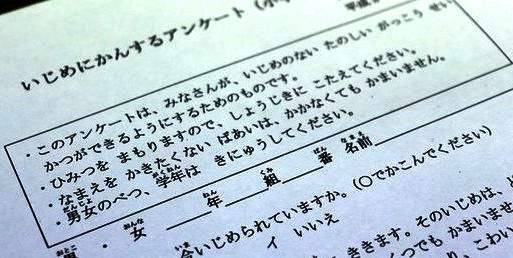 いじめにかんするアンケート（小
平成
・このアンケートは、みなさんが、いじめのない たのしい がっこう せい
かつができるようにするためのものです。
・ひみつを まもりますので、しょうじきに こたえてください。
・なまえを かきたくない ばあいは、かかなくても かまいません。
・男女のべつ、学年は きにゅうしてください。
男・女 ＿＿年＿＿組＿＿番 名前
今いじめられていますか。（○でかこんでください）
イ いいえ
ききます。そのいじめは、
くつでも かまいませ
こわい